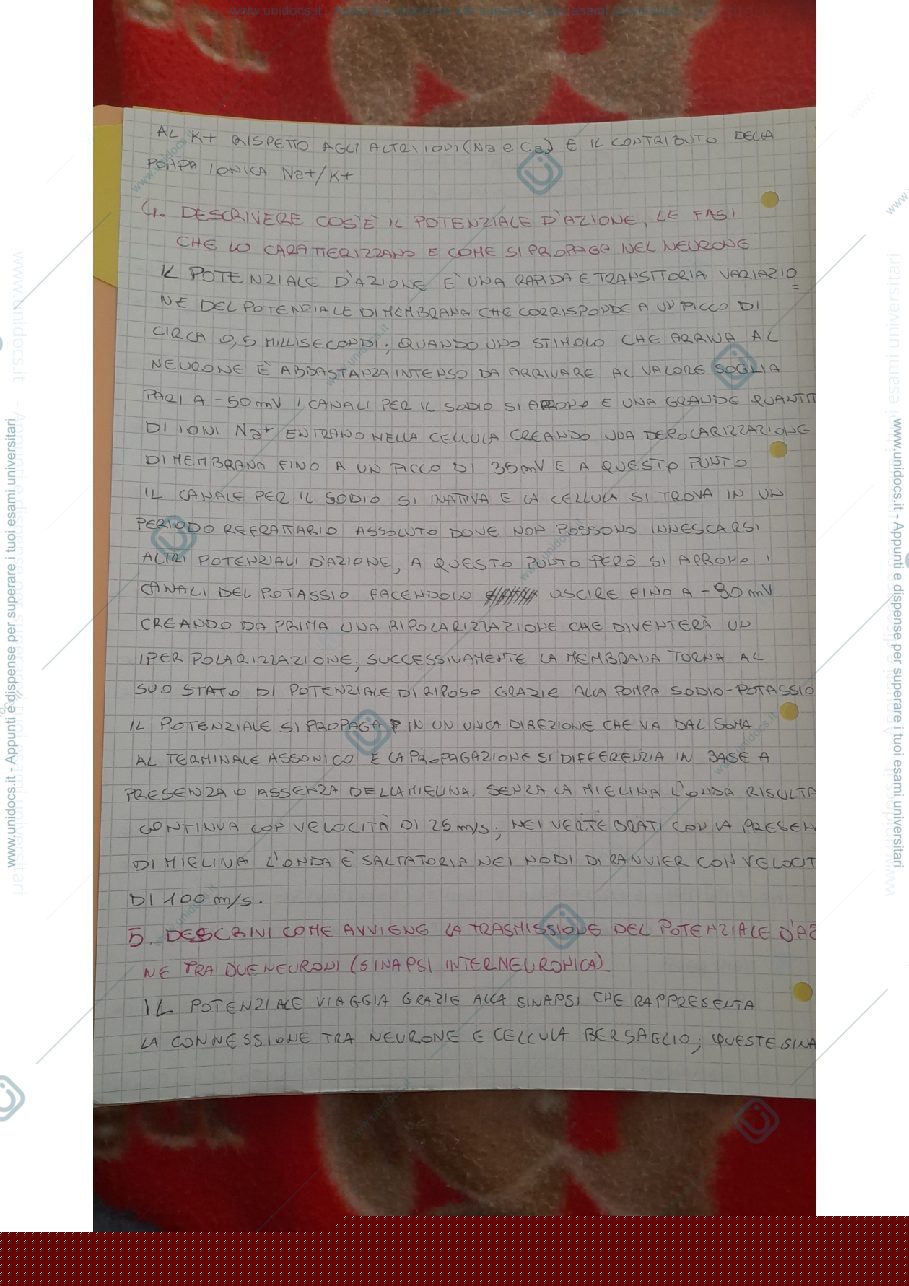 AL K+ RISPETTO AGLI ALTRI IONI (Na e Ca) E IL CONTRIBUTO DELLA
POMPA IONICA Na+/K+
4. DESCRIVERE COS'È IL POTENZIALE D'AZIONE, LE FASI
CHE LO CARATTERIZZANO E COME SI PROPAGA NEL NEURONE
IL POTENZIALE D'AZIONE E' UNA RAPIDA E TRANSITORIA VARIAZIO
NE DEL POTENZIALE DI MEMBRANA CHE CORRISPONDE A UN PICCO DI
CIRCA 0,5 MILLISECONDI; QUANDO UNO STIMOLO CHE ARRIVA AL
NEURONE È ABBASTANZA INTENSO DA ARRIVARE AL VALORE SOGLIA
PARI A -50mV I CANALI PER IL SODIO SI APRONO E UNA GRANDE QUANTIT
DI IONI Na+ ENTRANO NELLA CELLULA CREANDO UNA DEPOLARIZZAZIONE
DI MEMBRANA FINO A UN PICCO DI 35mV E A QUESTO PUNTO
IL CANALE PER IL SODIO SI INATIVA E LA CELLULA SI TROVA IN UN
PERIODO REFRATTARIO ASSOLUTO DOVE NON POSSONO INNESCARSI
ALTRI POTENZIALI D'AZIONE, A QUESTO PUNTO PERÒ SI APRONO I
CANALI DEL POTASSIO FACENDOLO USCIRE FINO A -90mV
CREANDO DA PRIMA UNA RIPOLARIZZAZIONE CHE DIVENTERÀ UN
IPERPOLARIZZAZIONE, SUCCESSIVAMENTE LA MEMBRANA TORNA AL
SUO STATO DI POTENZIALE DI RIPOSO GRAZIE ALLA POMPA SODIO-POTASSIO
IL POTENZIALE SI PROPAGA IN UN UNICA DIREZIONE CHE VA DAL SOMA
AL TERMINALE ASSONICO E LA PROPAGAZIONE SI DIFFERENZIA IN BASE A
PRESENZA O ASSENZA DELLA MIELINA. SENZA LA MIELINA L'ONDA RISULTA
CONTINUA CON VELOCITÀ DI 25 m/s; NEI VERTEBRATI CON LA PRESEN
DI MIELINA L'ONDA È SALTATORIA NEI NODI DI RANVIER CON VELOCIT
DI 100 m/s.
5. DESCRIVI COME AVVIENE LA TRASMISSIONE DEL POTENZIALE D'AZ
NE TRA DUE NEURONI (SINAPSI INTERNEURONICA)
IL POTENZIALE VIAGGIA GRAZIE ALLA SINAPSI CHE RAPPRESENTA
LA CONNESSIONE TRA NEURONE E CELLULA BERSAGLIO; QUESTE SINA
www.unidocs.it - Appunti e dispense per superare i tuoi esami universitari
www.unidocs.it - Appunti e dispense per superare i tuoi esami universitari